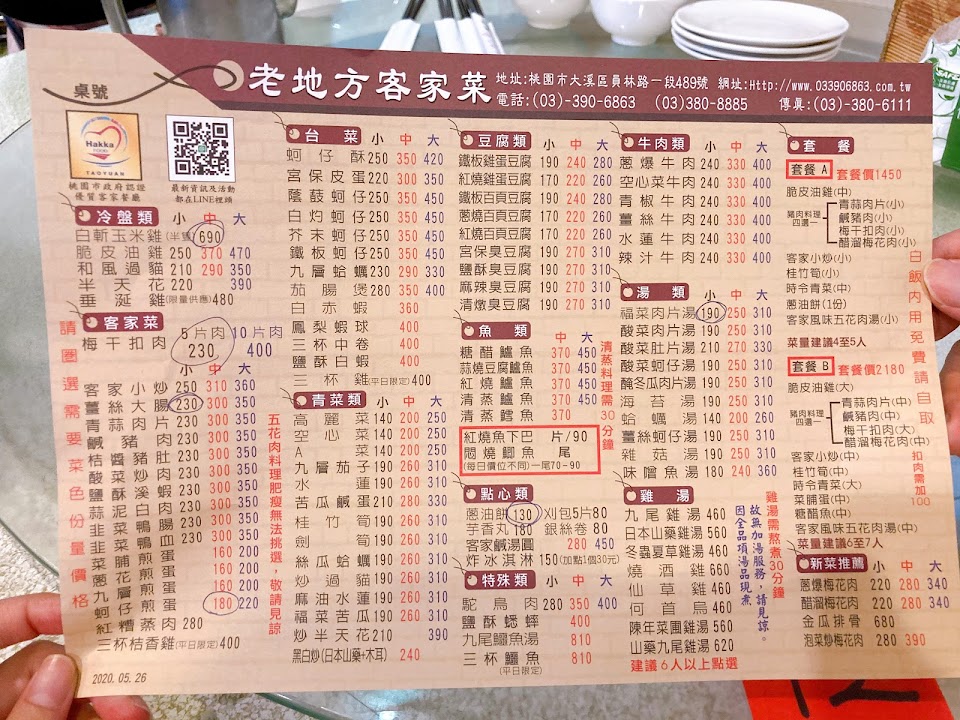 桌號
老地方客家菜
地址:桃園市大溪區員林路一段489號 網址:Http://www.033906863.com.tw
電話:(03)-390-6863 (03)380-8885 傳真:(03)-380-6111
Hakka
FOOD
TAOYUAN
桃園市政府認證
優質客家餐廳
最新資訊及活動
都在LINE裡頭
冷盤類 小 中 大
白斬玉米雞(半隻) 690
脆皮油雞 250 370 470
和風過貓 210 290 350
半天花 220 390
垂涎雞(限量供應)480
請圈選需要菜色份量價格
客家菜 5片肉 10片肉
梅干扣肉 230 400
小 中 大
客家小炒 250 310 360
薑絲大腸 230 300 350
青蒜肉片 230 300 350
鹹豬肉 230 300 350
桔醬豬肚 230 300 350
鹽酥溪蝦 230 300 350
蒜泥白肉 230 300 350
韭菜鴨腸 230 300 350
韭菜鴨血 230 300 350
菜脯煎蛋 160 200
蔥花煎蛋 160 200
蚵仔煎蛋 180 220
紅糟蒸肉 280
三杯桔香雞(平日限定)400
2020. 05. 26
五花肉料理肥瘦無法挑選，敬請見諒
台菜 小 中 大
蚵仔酥 250 350 420
宮保皮蛋 220 300 350
蔭豉蚵仔 250 350 450
白灼蚵仔 250 350 450
芥末蚵仔 250 350 450
鐵板蚵仔 250 350 450
九層蛤蠣 230 290 330
茄腸煲 280 350 400
白赤蝦 360
鳳梨蝦球 400
三杯中卷 400
鹽酥白蝦 400
三杯雞(平日限定)400
青菜類 小 中 大
高麗菜 140 200 250
空心菜 140 200 250
A菜 140 200 250
九層茄子 190 260 310
水蓮 190 260 310
苦瓜鹹蛋 210 280 330
桂竹筍 190 260 310
劍筍 190 260 310
絲瓜蛤蠣 190 260 310
炒過貓 190 260 310
麻油水蓮 190 260 310
福菜苦瓜 190 260 310
炒半天花 210 390
黑白炒(日本山藥+木耳) 240
豆腐類 小 中 大
鐵板雞蛋豆腐 190 240 280
紅燒雞蛋豆腐 170 220 260
鐵板百頁豆腐 190 240 280
蔥燒百頁豆腐 170 220 260
紅燒百頁豆腐 170 220 260
宮保臭豆腐 190 270 310
鹽酥臭豆腐 190 270 310
麻辣臭豆腐 190 270 310
清燉臭豆腐 190 270 310
魚類 中 大
糖醋鱸魚 370 450
蒜燒豆腐鱸魚 370 450
紅燒鱸魚 370 450
清蒸鱸魚 370 450
清蒸鱈魚 370
清蒸料理需30分鐘
紅燒魚下巴 片/90
悶燒鯽魚 尾
(每日價位不同)一尾70-90
點心類
蔥油餅 130 刈包5片80
芋香丸 180 銀絲卷 80
客家鹹湯圓 280 450
炸冰淇淋 150(加點1個30元)
特殊類 小 中 大
鴕鳥肉 280 350 400
鹽酥蟋蟀 400
九尾鱷魚湯 810
三杯鱷魚 810
(平日限定)
牛肉類 小 中 大
蔥爆牛肉 240 330 400
空心菜牛肉 240 330 400
青椒牛肉 240 330 400
薑絲牛肉 240 330 400
水蓮牛肉 240 330 400
辣汁牛肉 240 330 400
湯類 小 中 大
福菜肉片湯 190 250 310
酸菜肉片湯 190 250 310
酸菜肚片湯 210 270 330
酸菜鴨血湯 190 250 310
醃冬瓜肉片湯 190 250 310
海苔湯 190 250 310
蛤蠣湯 140 200 260
薑絲蚵仔湯 190 250 310
雜菇湯 190 250 310
味噌魚湯 180 240 360
雞湯
九尾雞湯 460
日本山藥雞湯 560
冬蟲夏草雞湯 460
燒酒雞 660
仙草雞 460
何首烏 460
陳年菜圃雞湯 560
山藥九尾雞湯 620
建議6人以上點選
雞湯需熬煮30分鐘
故無加湯服務，請見諒。
因全品項湯品現煮
套餐
套餐A 套餐價1450
脆皮油雞(中)
豬肉料理
四選一
青蒜肉片(小)
鹹豬肉(小)
梅干扣肉(小)
醋溜梅花肉(小)
客家小炒(小)
桂竹筍(小)
時令青菜(中)
蔥油餅(1份)
客家風味五花肉湯(小)
菜量建議4至5人
套餐B 套餐價2180
脆皮油雞(大)
豬肉料理
四選一
青蒜肉片(中)
鹹豬肉(中)
梅干扣肉(大)
醋溜梅花肉(中)
客家小炒(中)
桂竹筍(中)
時令青菜(大)
菜脯蛋(中)
糖醋魚(中)
客家風味五花肉湯(中)
菜量建議6至7人
白飯內用免費請自取
扣肉需加100
新菜推薦 小 中 大
蔥爆梅花肉 220 280 340
醋溜梅花肉 220 280 340
金瓜排骨 680
泡菜炒梅花肉 280 390